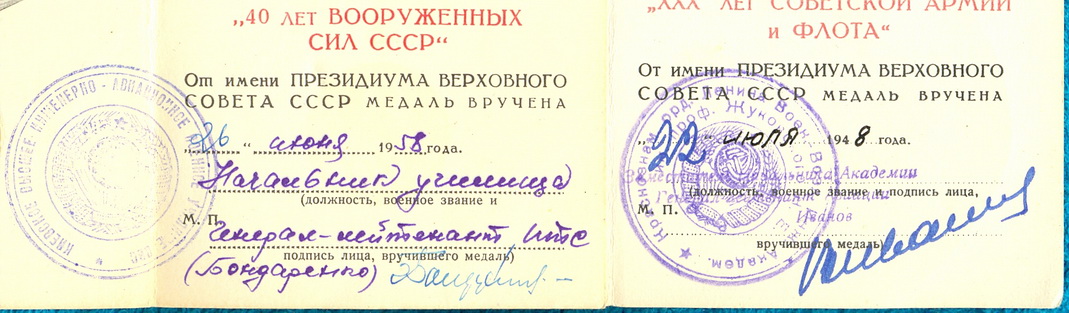 „40 ЛЕТ ВООРУЖЕННЫХ
СИЛ СССР“
От имени ПРЕЗИДИУМА ВЕРХОВНОГО
СОВЕТА СССР МЕДАЛЬ ВРУЧЕНА
„26“ июня 1958 года.
Начальник училища
(должность, военное звание и
М. П.
Генерал-лейтенант ИТС
подпись лица, вручившего медаль)
(Бондаренко)
КИЕВСКОЕ ВЫСШЕЕ ИНЖЕНЕРНО-АВИАЦИОННОЕ
„XXX ЛЕТ СОВЕТСКОЙ АРМИИ
и ФЛОТА“
От имени ПРЕЗИДИУМА ВЕРХОВНОГО
СОВЕТА СССР МЕДАЛЬ ВРУЧЕНА
„22 июля 1948 года.
Начальника Академии
(должность, военное звание и подпись лица,
М. П.
Иванов
вручившего медаль)